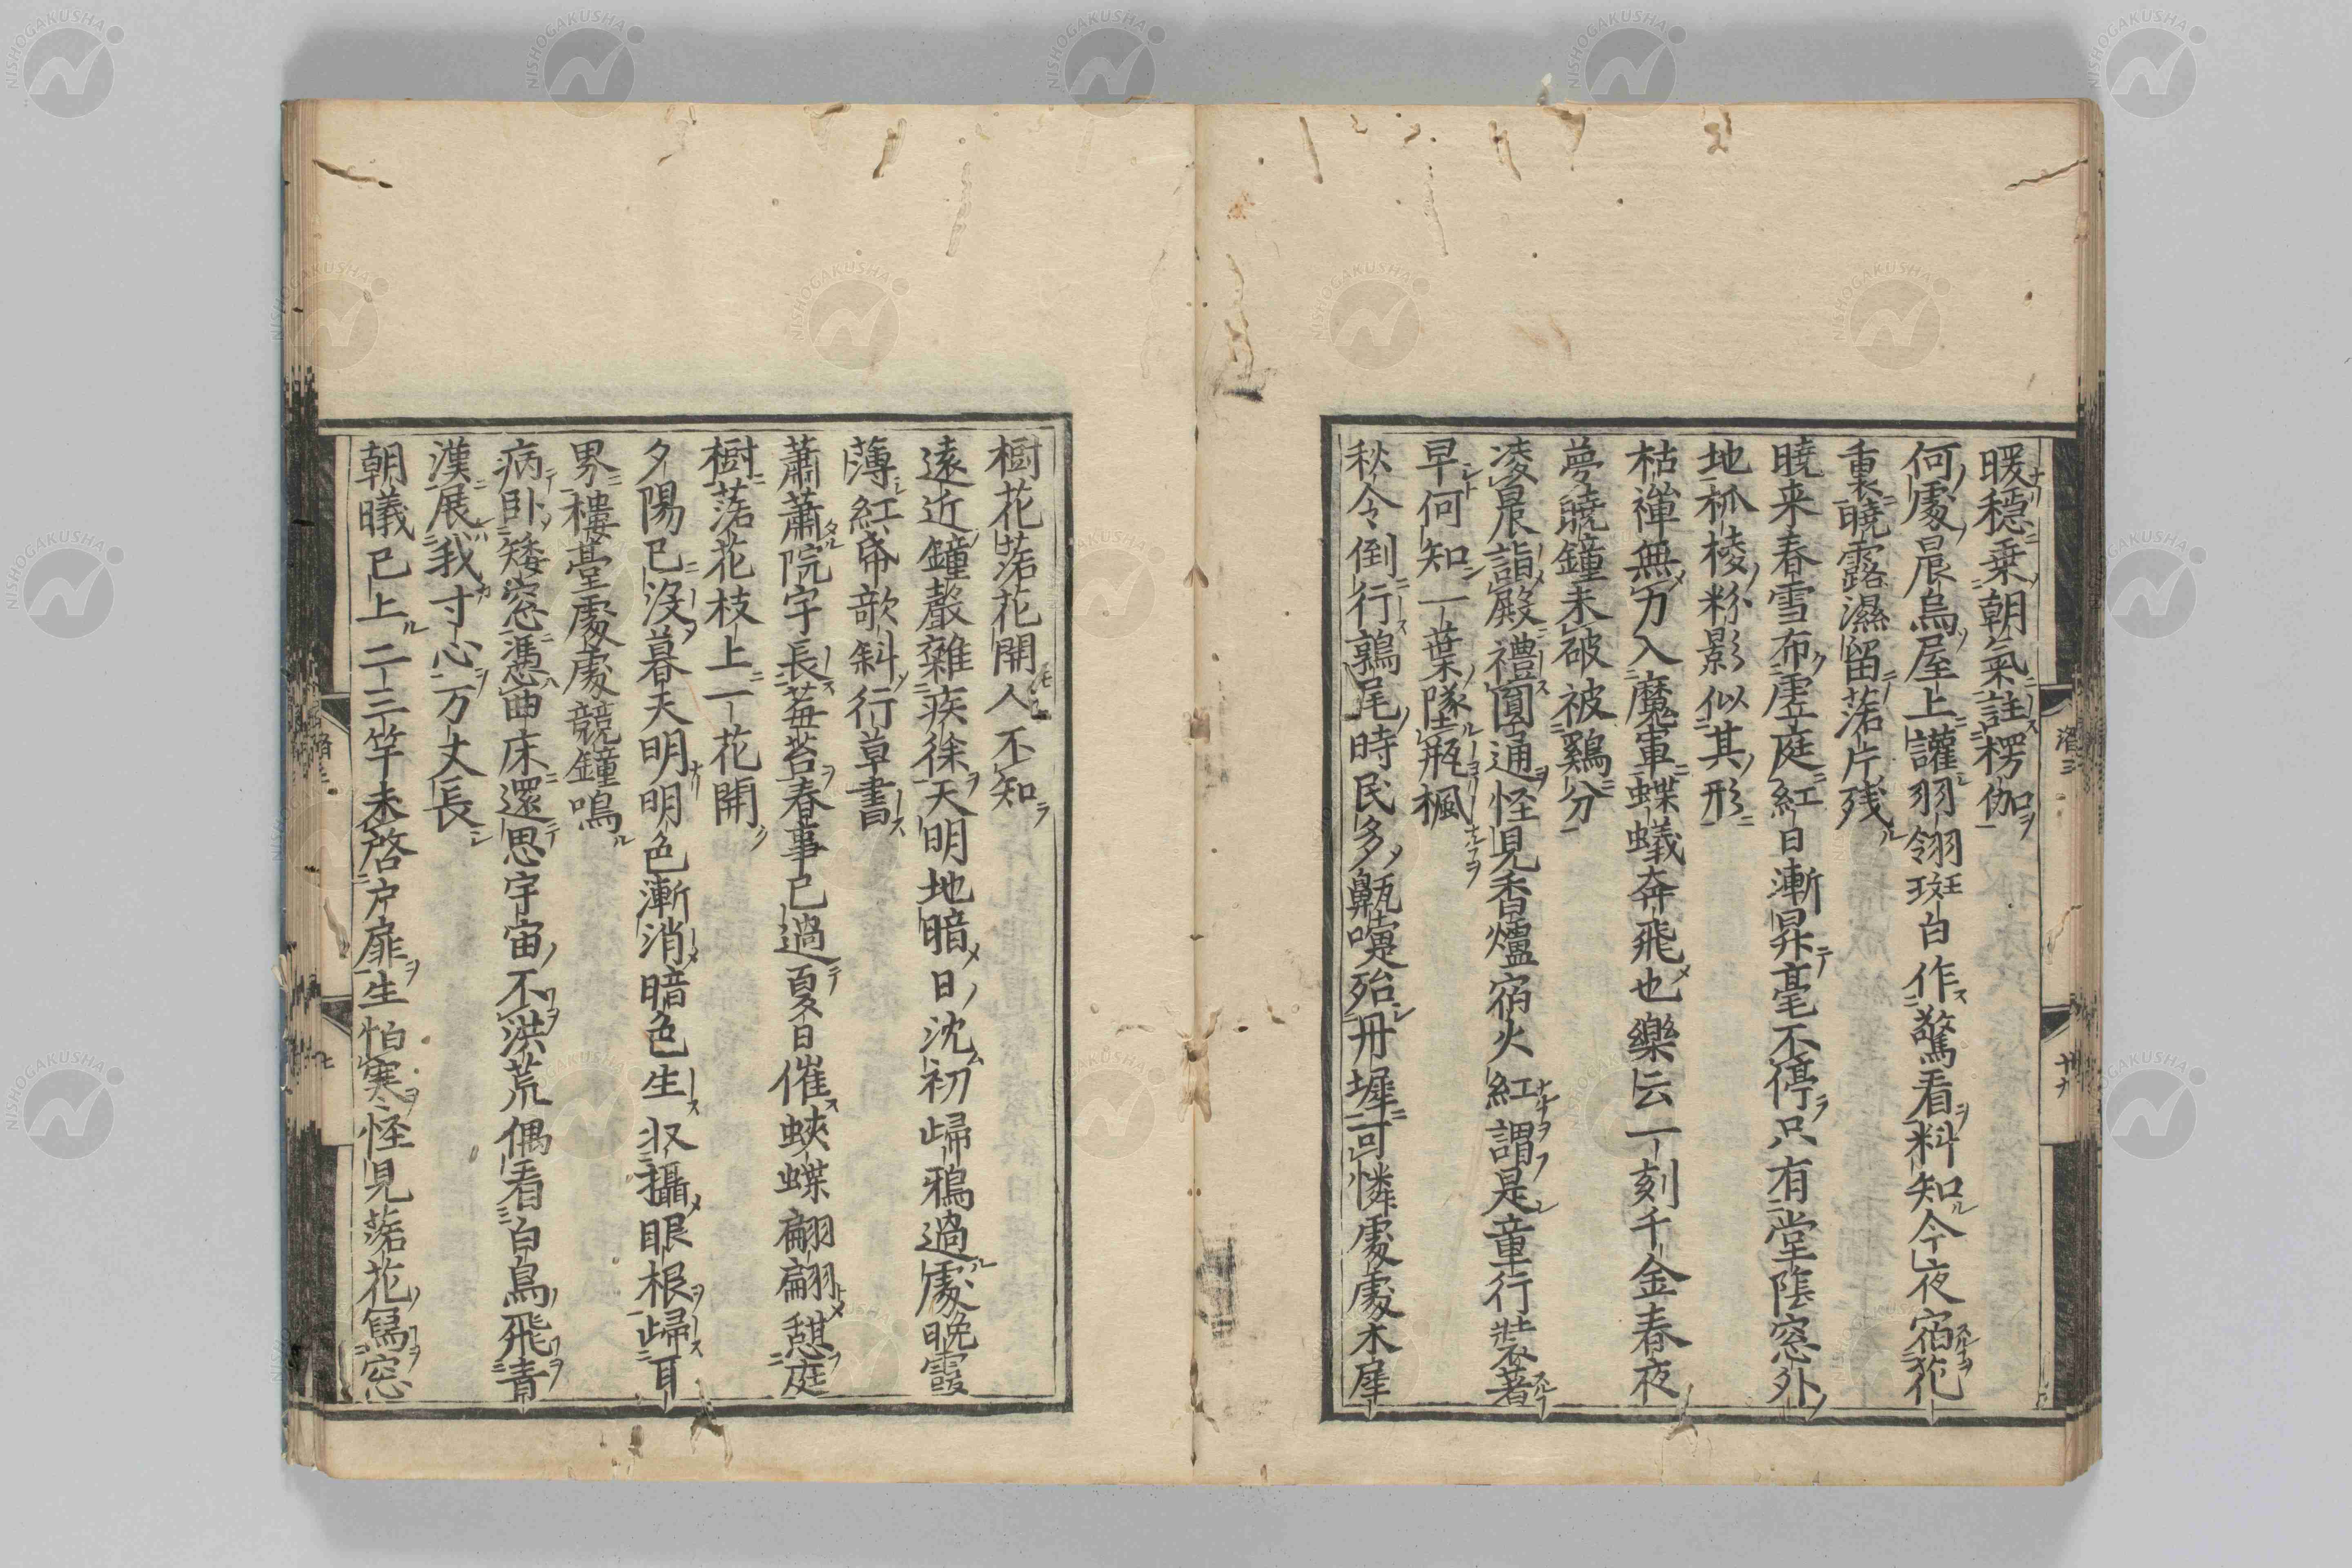 暖穏乗朝氣註楞伽
何處晨烏屋上讙羽翎斑白作驚看料知今夜宿花
裏曉露濕留落片残
曉来春雪布虚庭紅日漸昇毫不停只有堂隂窓外
地柧棱粉影似其形
枯禅無力入魔軍蝶蟻奔飛也樂云一刻千金春夜
夢曉鐘未破被鷄分
凌晨詣殿禮圓通怪見香爐宿火紅謂是童行裝著
早何知一葉墜瓶楓
秋令倒行鶉尾時民多鼽嚏殆丹墀可憐處處木犀
樹花落花開人不知
遠近鐘聲雜疾徐天明地暗日沈初歸鴉過處晩霞
薄紅帋歆斜行草書
蕭蕭院宇長莓苔春事已過夏日催蛺蝶翩翩憩庭
樹落花枝上一花開
夕陽已没暮天明明色漸消暗色生収攝眼根歸耳
界樓臺處處競鐘鳴
病卧矮窓憑曲床還思宇宙不洪荒偶看白鳥飛青
漢展我寸心万丈長
朝曦已上二三竿未啓戸扉生怕寒怪見落花寫窓